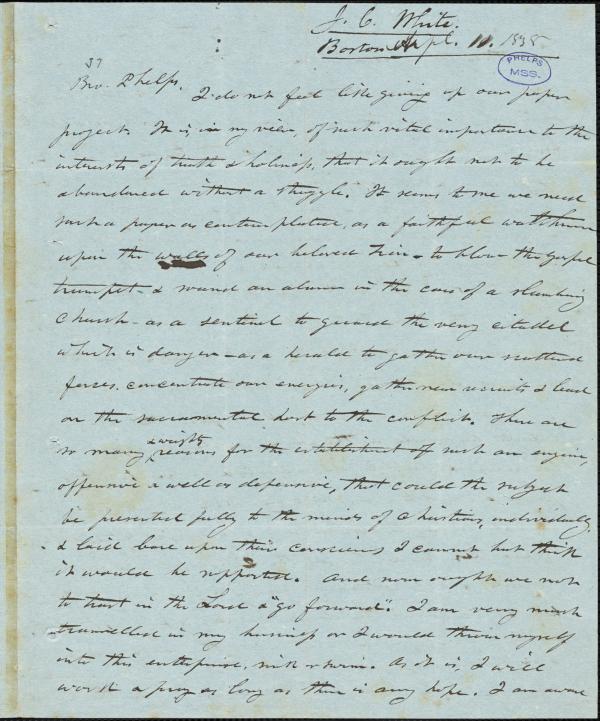 J. C. White.
Boston Apl. 11. 1838
PHELPS
MSS.
37
Bro. Phelps.
I do not feel like giving up our paper
project. It is, in my view, of such vital importance to the
interests of truth & holiness, that it ought not to be
abandoned without a struggle. It seems to me we need
such a paper as contemplated, as a faithful watchman
upon the walls of our beloved Zion - to blow the gospel
trumpet & sound an alarm in the ears of a slumbering
Church - as a sentinel to guard the very citadel
which is danger - as a herald to gather our scattered
forces, concentrate our energies, gather new recruits & lead
on the sacramental host to the conflict. There are
so many & weighty reasons for the establishment of such an engine,
offensive as well as defensive, that could the subject
be presented fully to the minds of Christians, individually,
& laid bare upon their consciences I cannot but think
it would be supported. And now ought we not
to trust in the Lord & "go forward". I am very much
tramelled in my business or I would throw myself
into this enterprise, sink or swim. As it is, I will
work & pray as long as there is any hope. I am aware